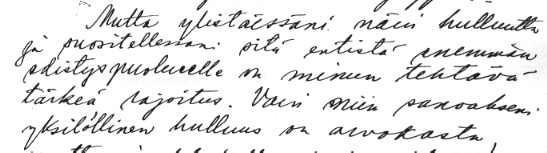 Mutta ylistäessäni näin hulluutta
ja suositellessani sitä entistä enemmän
edistyspuolueelle on minun tehtävä
tärkeä rajoitus. Vain niin sanoakseni
yksilöllinen hulluus on arvokasta,